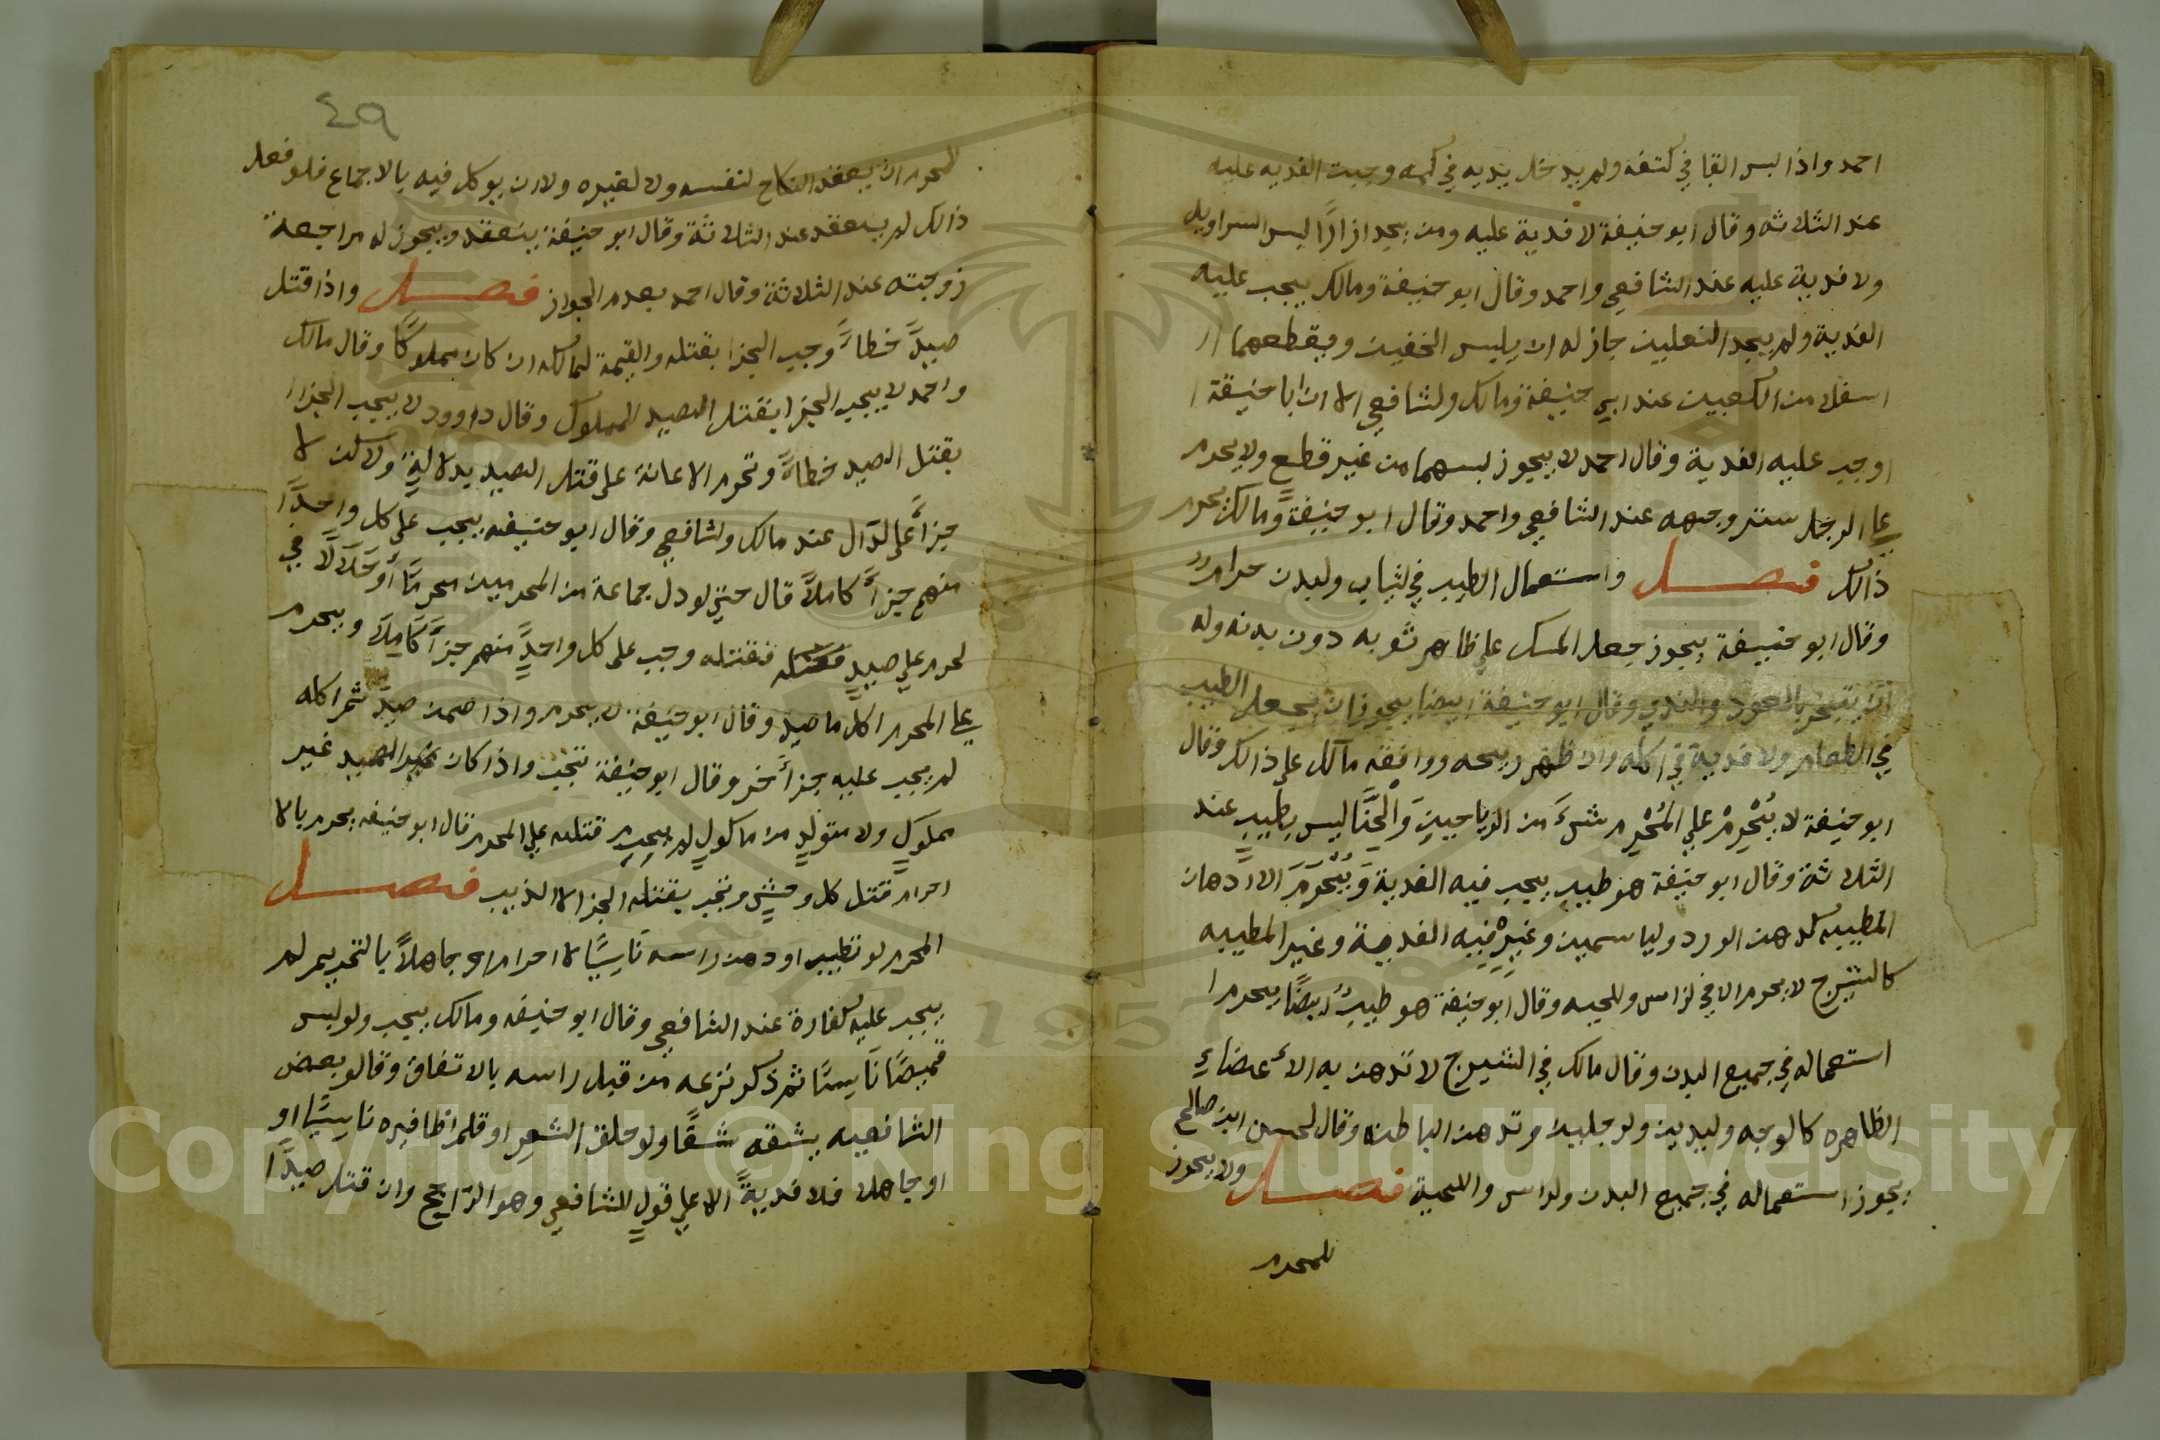 احمد واذا لبس القبا في كتفه ولم يدخل يديه في كمه وجبت الفديه عليه
عند الثلاثه وقال ابو حنيفة لا فدية عليه ومن يجد ازارًا لبس السراويل
ولا فدية عليه عند الشافعي واحمد وقال ابو حنيفة ومالك يجب عليه
الفدية ولم يجد النعلين جاز له ان يلبس الخفين ويقطعهما
اسفل من الكعبين عند ابي حنيفة ومالك ولشافعي الا ان ابا حنيفة
اوجب عليه الفدية وقال احمد لا يجوز لبسهما من غير قطع ولا يحرم
علي الرجل ستر وجهه عند الشافعي واحمد وقال ابو حنيفة ومالك يحرم
ذالك فصل واستعمال الطيب في لثياب ولبدن حرام
وقال ابو حنيفة يجوز جعل المسك علي ظاهر ثوبه دون بدنه وله
ان يتبخر بالعود والندي وقال ابو حنيفة ايضا يجوز ان يجعل الطيب
في الطعام ولا فدية في اكله وان ظهر ريحه ووافقه مالك علي ذالك وقال
ابو حنيفة لا يُحْرِمْ علي المُحْرِم شئ من الرياحين وَالْحِنَّا ليس بطيب عند
الثلاثة وقال ابو حنيفة هو طيب يجب فيه الفدية وَيُحْرَمَ الادهان
المطيبه كدهن الورد وليا سمين وغيره فيه الفدية وغير المطيبه
كالشيرج لا يحرم الا في لراس وللحيه وقال ابو حنيفة هو طيب ايضًا يحرم
استعماله في جميع البدن وقال مالك في الشيرج لا تدهن به الأعضاء
الظاهره كالوجه وليدين ولرجلين وتدهن الباطنه وقال لحسن ابن صالح
يجوز استعماله في جميع البدن ولراس واللحية فصل ولا يجوز
للمحرم
٤٩
المحرم ان يعقد النكاح لنفسه ولا لغيره ولا ان يوكل فيه بالاجماع فلو فعل
ذالك لم ينعقد عند الثلاثة وقال ابو حنيفة ينعقد ويجوز له مراجعة
زوجته عند الثلاثة وقال احمد بعدم الجواز فصل واذا قتل
صيدً خطاءً وجب الجزا بقتله والقيمة لمالكه ان كان مملوكًا وقال مالك
واحمد لا يجب الجزا بقتل الصيد المملوك وقال داوود لا يجب الجزا
بقتل الصيد خطاءً وتحرم الاعانة علي قتل الصيد بدلالةٍ ولاكن لا
جزأ علي لدال عند مالك ولشافعي وقال ابو حنيفه يجب علي كل واحدًا
منهم جزأً كاملاً قال حتي لو دل جماعة من المحرمين محرمًا أو حَلَالًا في
لحرم علي صيدٍ فقتله وجب علي كل واحدٍ منهم جزأً كَامِلاً ويحرم
علي المحرم اكل ما صيد وقال ابو حنيفة لا يحرم واذا ضمن صيدً ثم اكله
لم يجب عليه جزأ خر وقال ابو حنيفة تجب واذا كان الصيد غير
مملوكٍ ولا متولدٍ من ماكولٍ لم يحرم قتله علي المحرم قال ابو حنيفه يحرم بالا
احرام قتل كل وحشي وتجب بقتله الجزا الا الذيب فصل
المحرم لو تطيب او دهن راسه نَاسِيًا لا احرام او جاهلاً بالتحريم لم
يجب عليه كفارة عند الشافعي وقال ابو حنيفه ومالك يجب ولو لبس
قميصًا نَاسِيًا ثم ذكر نزعه من قبل راسه بالاتفاق وقالو بعض
الشافعيه يشقه شقًا ولو حلق الشعر او قلم اظافيره ناسِيًا او
او جاهلا فلا فديةً الا علي قولٍ للشافعي وهو الرّاجح وان قتل صيدًا
Copyright © King Saud University
1957